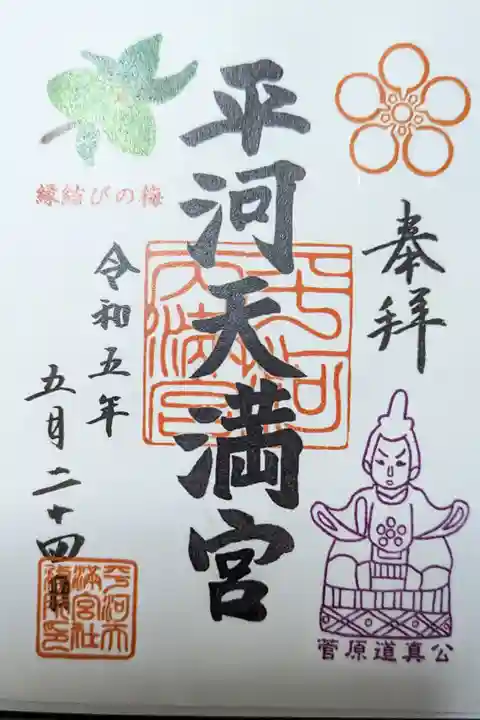 奉拝
菅原道真公
平河天満宮
平河天満宮
縁結びの梅
令和五年
五月二十四日
平河天
満宮社